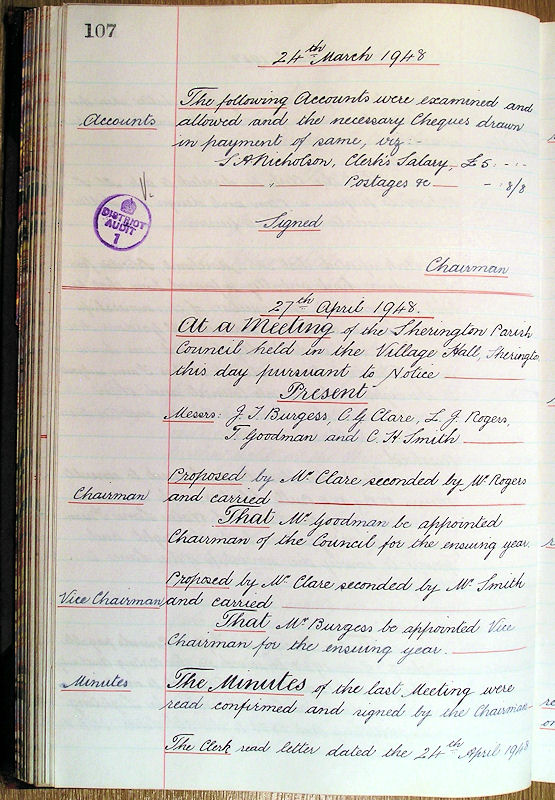 107
24th March 1948
Accounts
The following Accounts were examined and
allowed and the necessary Cheques drawn
in payment of same, viz:-
S A Nicholson, Clerk's Salary, £5 : - : -
" Postages &c - : 8/8
DISTRICT
AUDIT
1
Signed
Chairman
27th April 1948.
At a Meeting of the Sherington Parish
Council held in the Village Hall, Sherington
this day pursuant to Notice
Present
Messrs: J. T Burgess, C. G Clare, L. J. Rogers,
T. Goodman and C. H Smith
Chairman
Proposed by Mr Clare seconded by Mr Rogers
and carried
That Mr Goodman be appointed
Chairman of the Council for the ensuing year.
Proposed by Mr Clare seconded by Mr Smith
Vice Chairman and carried
That Mr Burgess be appointed Vice
Chairman for the ensuing year.
Minutes
The Minutes of the last Meeting were
read confirmed and signed by the Chairman
The Clerk read letter dated the 24th April 1948